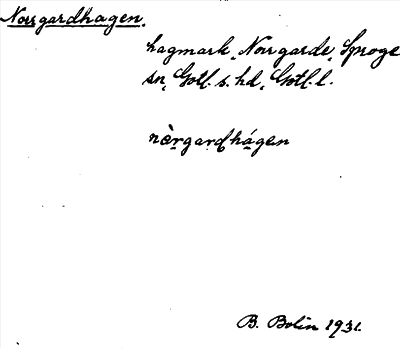 Norrgardhagen.
hagmark, Norrgarde, Sproge
sn, Gotl. s. hd, Gotl. l.
nòrgardhágen
B. Bolin 1931.